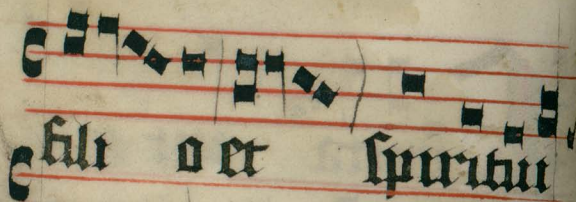 fili o et spiritui